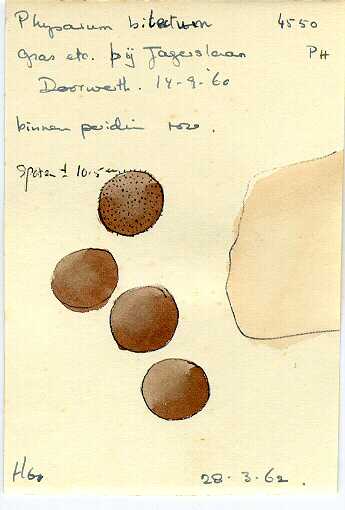 Physarum bitectum 4550
gras etc. bij Jagerslaan PH
Doorwerth. 14-9-'60
binnen peridie roze.
Sporen ± 10.5
28-3-62.